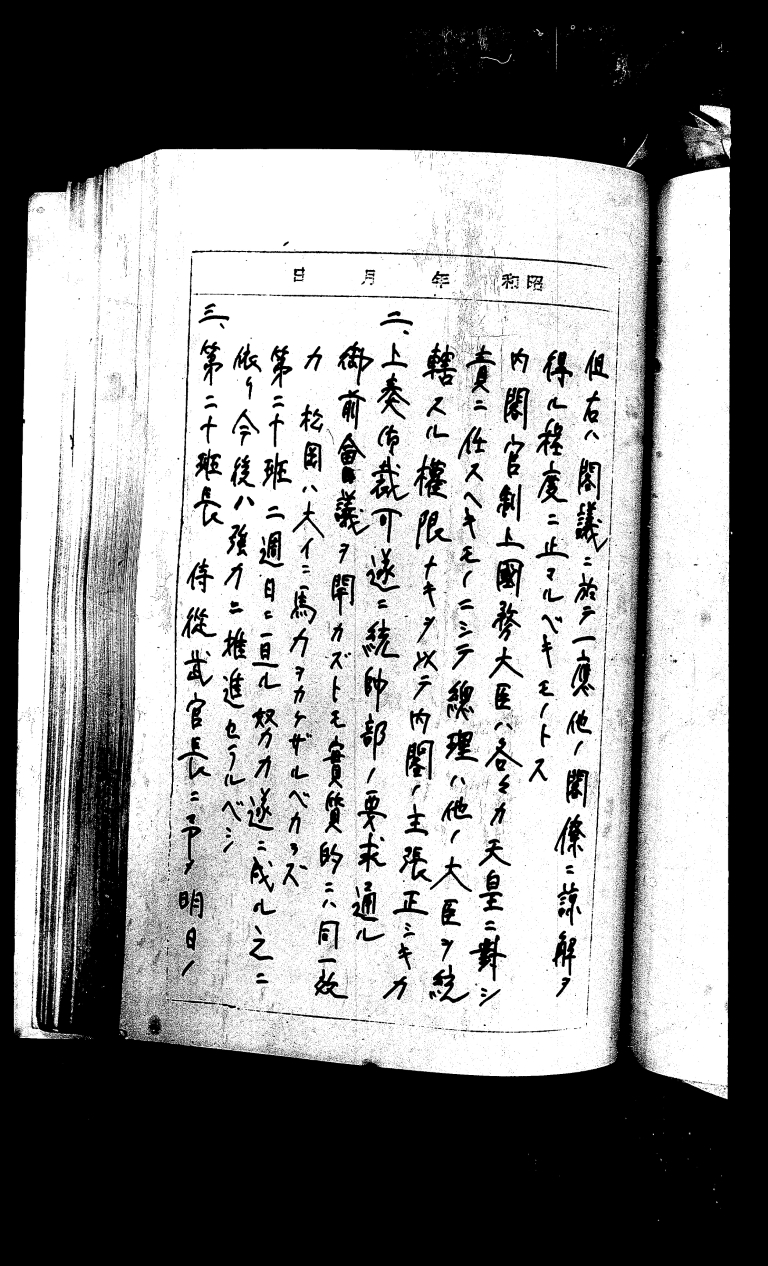 昭和　年　月　日
但右ハ閣議ニ於テ一應他ノ閣僚ニ諒解ヲ
得ル程度ニ止マルベキモノトス
内閣官制上國務大臣ハ各々カ天皇ニ對シ
責ニ任スヘキモノニシテ總理ハ他ノ大臣ヲ統
轄スル權限ナキヲ以テ内閣ノ主張正シキカ
二、上奏御裁可遂ニ統帥部ノ要求通ル
御前會議ヲ開カズトモ實質的ニハ同一效
力　松岡ハ大イニ馬力ヲカケザルベカラズ
第二十班二週日ニ亘ル努力遂ニ成ル、之ニ
依リ今後ハ強力ニ推進セラルベシ
三、第二十班長　侍從武官長ニ　明日ノ